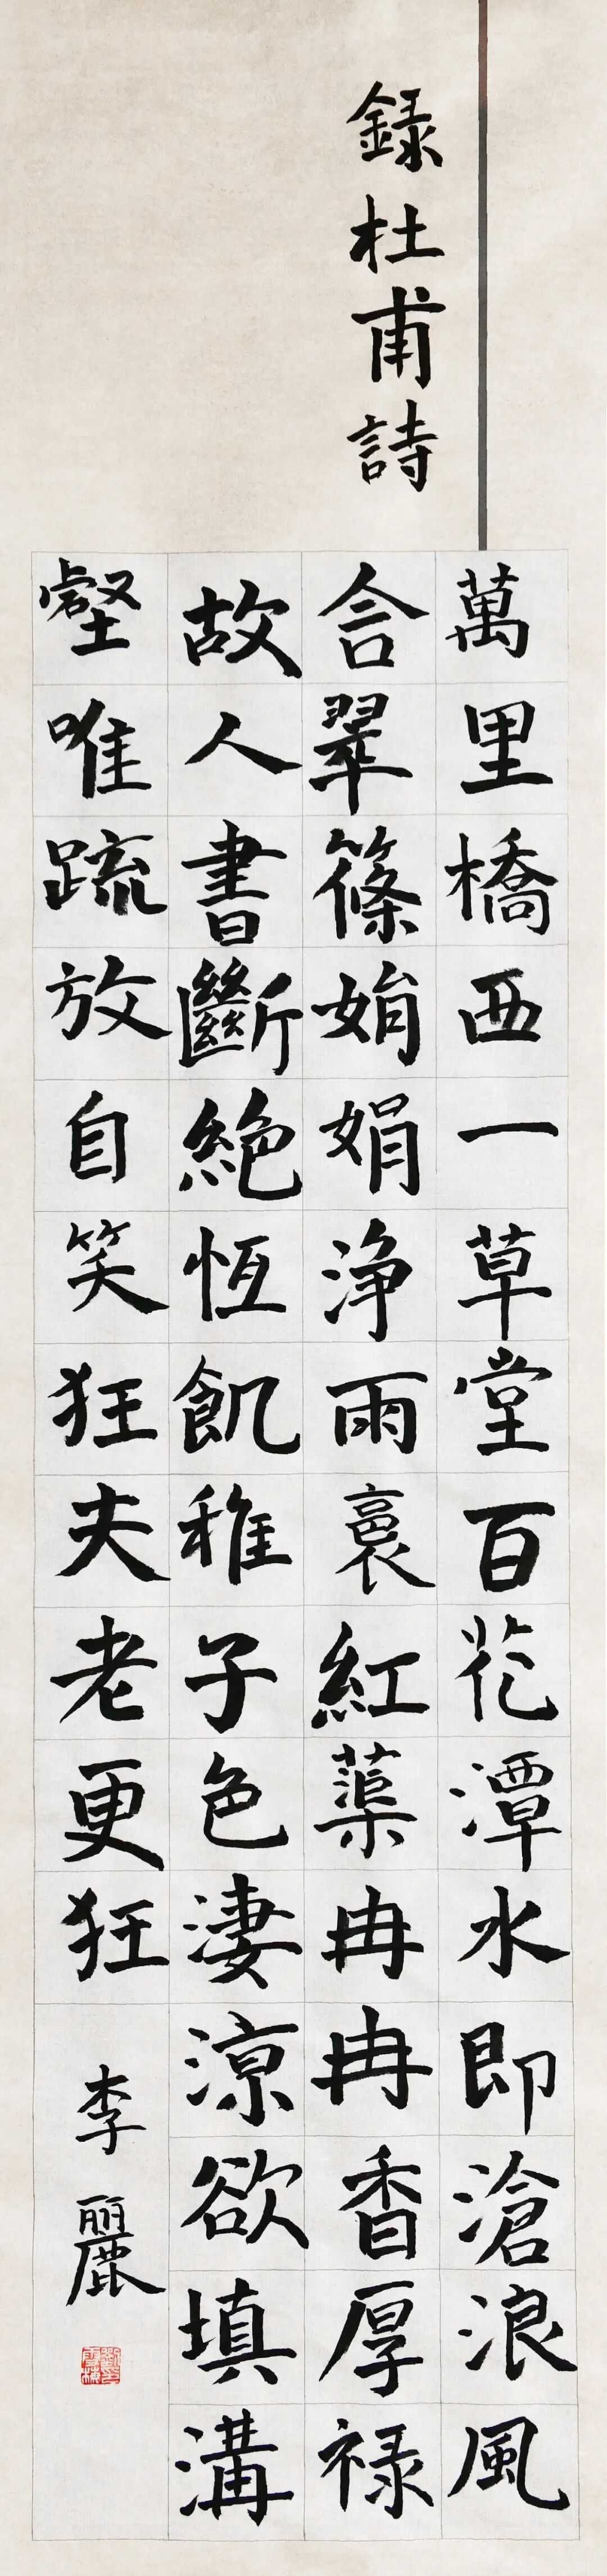 録杜甫詩
萬里橋西一草堂百花潭水即滄浪風
含翠篠娟娟浄雨裛紅蕖冉冉香厚禄
故人書斷絶恆飢稚子色淒涼欲填溝
壑唯䟽放自笑狂夫老更狂
李麗